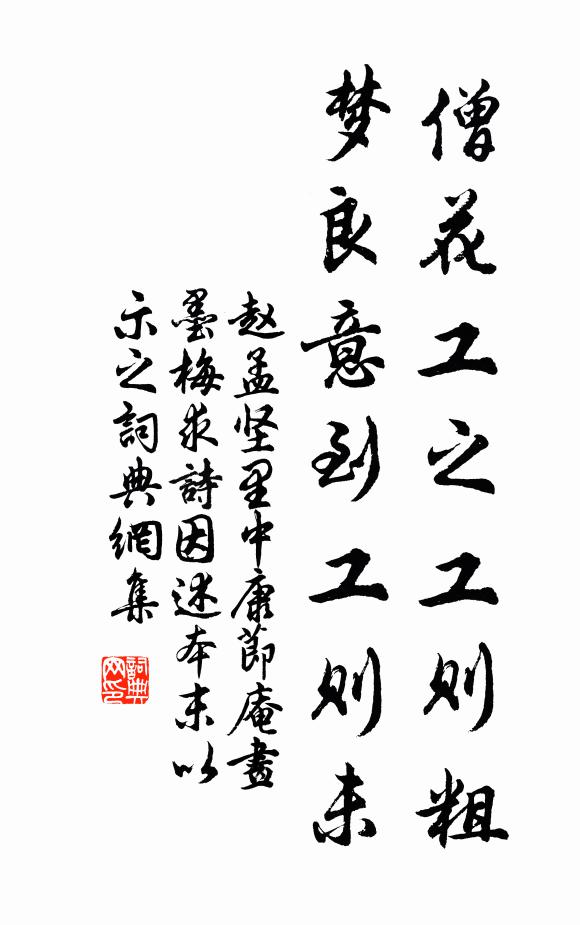 僧花工之工则粗
梦良意到工则未
赵孟坚里中康節庵畫
墨梅求詩因述本末以
示之詞典網集
詞典网印